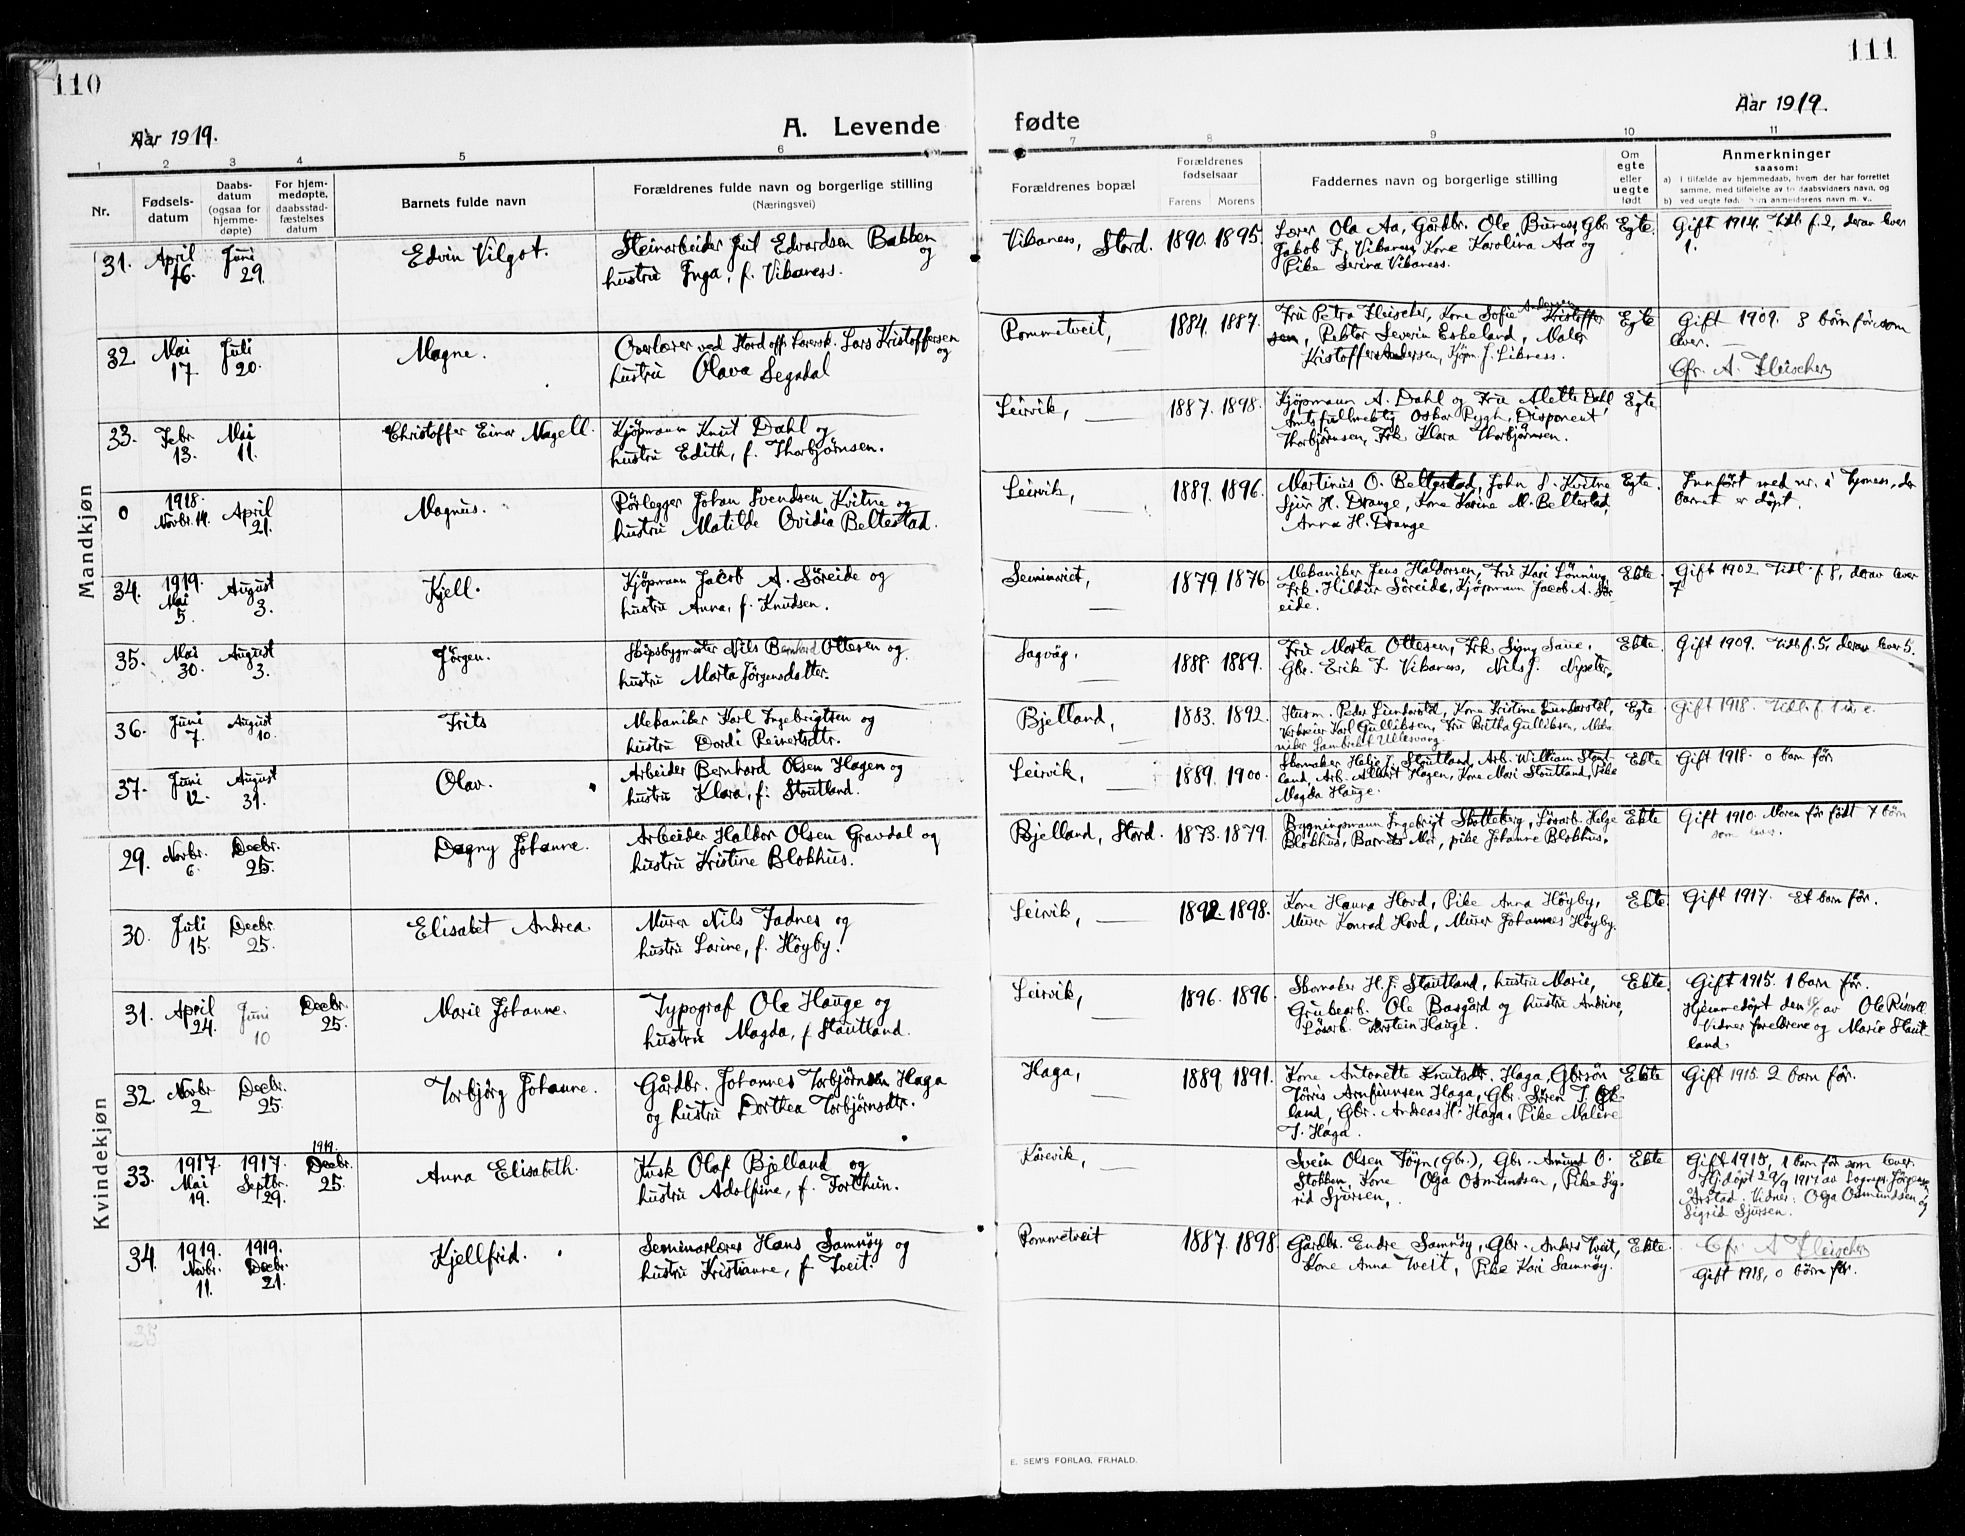 110
111
Aar 1919.
A. Levende
fødte
Aar 1919.
1 2 3 4 5 6 7 8 9 10 11
Nr.
Fødsels-
datum
Daabs-
datum
(ogsaa for
hjemme-
døpte)
For hjem-
medøpte,
daabsstad-
fæstelses
datum
Barnets fulde navn
Forældrenes fulde navn og borgerlige stilling
(Næringsvei)
Forældrenes bopæl
Forældrenes
fødselsaar
Farens Morens
Faddernes navn og borgerlige stilling
Om
egte
eller
uegte
født
Anmerkninger
saasom:
a) I tilfælde av hjemmedaab, hvem der har forrettet
samme, med tilføielse av to daabsvidners navn, og
b) ved uegte født barn anmelderens navn m. v.
Mandkjøn
31. April 16. Juni 29. Edvin Vilgot.
Steinarbeider Juul Edvardsen Bakken og
hustru Inga, f. Vikaness.
Vikaness, Stord. 1890. 1895.
Lærer Ola Aa, Gårdbr. Ole Buness, Gbr.
Jakob T. Vikaness, Kone Karolina Aa og
Pike Serina Vikaness.
Egte.
Gift 1914. Tidl. f. 2, derav lever
1.
32. Mai 17 Juli 20. Magne.
Overlærer ved Stord off. Lærersk. Lars Kristoffersen og
hustru Olava Segadal
Rommetveit, — 1884. 1887.
Fru Petra Fleischer, Kone Sofie Andersen Kristoffer
sen, Rektor Severin Eskeland, Maler
Kristoffer Andersen, Kjøpm. J. Likness.
Egte
Gift 1909. 3 börn för som
lever. —
Cfr. A. Fleischer
33. Febr. 13. Mai 11. Christoffer Einar Magell.
Kjöpmann Knut Dahl og
hustru Edith, f. Thorbjørnsen.
Leirvik, — 1887. 1898.
Kjöpmann A. Dahl og Fru Alette Dahl,
Amtsfullmektig Oskar Rygh, Disponent
Thorbjörnsen, Frk Klara Thorbjørnsen.
Egte
0 1918. Novbr. 14. April 21. Magnus.
Rörlegger Johan Svendsen Kvitne og
hustru Matilde Ovidia Beltestad.
Leirvik, — 1889. 1896.
Martinus O. Beltestad, John S. Kvitne
Sjur H. Drange, Kone Karine M. Beltestad,
Anna H. Drange
Egte.
Innfört med nr. i Tysness, der
barnet er döpt.
34. 1919. Mai 5. August 3. Kjell.
Kjöpmann Jacob A. Söreide og
hustru Anna, f. Knudsen.
Seminariet, — 1879 1876.
Mekaniker Jens Haldorsen, Fru Kari Lönning,
Frk. Hildur Söreide, Kjöpmann Jacob A. Sör
eide.
Ekte.
Gift 1902. Tidl. f. 8, derav lever
7
35. Mai 30. August 3. Jörgen.
Skipsbygmester Nils Bernhard Ottesen og
hustru Marta Jörgensdatter.
Sagvåg. 1888. 1889.
Fru Marta Ottesen, Frk Signy Saue,
Gbr. Erik T. Vikaness, Nils J. Nysæter.
Ekte.
Gift 1909. Tidl. f. 5, derav lever 5.
36. Juni 7. August 10. Frits
Mekaniker Karl Ingebrigtsen og
hustru Dordi Reinertsdtr.
Bjelland, — 1883. 1892.
Husm. Peder Lunderstöl, Kone Kristine Lunderstöl,
Verkseier Karl Gulliksen, Fru Britha Gulliksen, Meka-
niker Lambrekt Ullesvang.
Egte
Gift 1918.
37. Juni 12. August 31. Olav.
Arbeider Bernhard Olsen Hagen og
hustru Klara, f. Stoutland.
Leirvik, — 1889. 1900.
Skomaker Helje J. Stoutland, Arb. William Stout-
land, Arb. Albert Hagen, Kone Mari Stoutland, Pike
Magda Hauge.
Ekte
Gift 1918. 0 barn för.
Kvindekjøn
29. Novbr. 6. Decbr. 25. Dagny Johanne.
Arbeider Haldor Olsen Gravdal og
hustru Kristine Blokhus.
Bjelland, Stord. 1873. 1879.
Bygningsmann Ingebrigt Skotteberg, Lösarb. Helge
Blokhus, Barnets Mor, pike Johanne Blokhus.
Ekte
Gift 1910. Moren för födt 7 börn
som lever.
30. Juli 15. Decbr. 25. Elisabet Andrea.
Murer Nils Tadnes og
hustru Larine, f. Höyby.
Leirvik, — 1892. 1898.
Kone Hanna Hovd, Pike Anna Höyby,
Murer Konrad Hovd, Murer Johannes Höyby.
Ekte
Gift 1917. Et barn för.
31. April 24. Juni 10 Decbr. 25. Marie Johanne.
Typograf Ole Hauge og
hustru Magda, f. Stautland.
Leirvik, — 1896. 1896.
Skomaker H. J. Stautland, hustru Marie,
Grubearb. Ole Basgård og hustru Andrine,
Lösarb. Torstein Hauge.
Ekte.
Gift 1915. 1 barn för.
Hjemmedöpt den 10/6 av Ole Risvoll
Vidner foreldrene og Marie Staut-
land.
32. Novbr 2 Decbr. 25. Torbjörg Johanne.
Gårdbr. Johannes Torbjörnsen Haga
og hustru Dorthea Torbjørnsdtr.
Haga, — 1889. 1891.
Kone Antonette Knutsdtr. Haga, Gbrsön
Törris Arnfinnsen Haga, Gbr. Sören T. Øk-
land, Gbr. Andreas H. Haga, Pike Malene
T. Haga.
Ekte
Gift 1915. 2 barn för.
33. 1917. Mai 19. 1917. Septbr. 29. 1919. Decbr. 25. Anna Elisabeth.
Kusk Olaf Bjelland og
hustru Adolfine, f. Forthun.
Kårevik, —
Svein Olsen Töyn (Gbr.), Gbr. Amund O.
Stokken, Kone Olga Osmundsen, Pike Sig-
rid Sjursen.
Ekte
Gift 1915, 1 barn för som lever.
Hj.döpt 29/9 1917 av Sognepr. Jörgen
Årstad. Vidner: Olga Osmundsen og
Sigrid Sjursen.
34. 1919. Novbr. 11. 1919. Decbr. 21. Kjellfrid.
Seminarlærer Hans Samnöy og
hustru Kristianne, f. Tveit.
Rommetveit 1887. 1898.
Gårdbr. Endre Samnöy, Gbr. Anders Tveit,
Kone Anna Tveit, Pike Kari Samnöy.
Ekte.
Cfr. A Fleischer
Gift 1918, 0 börn för.
35
E. SEM'S FORLAG, FR.HALD.